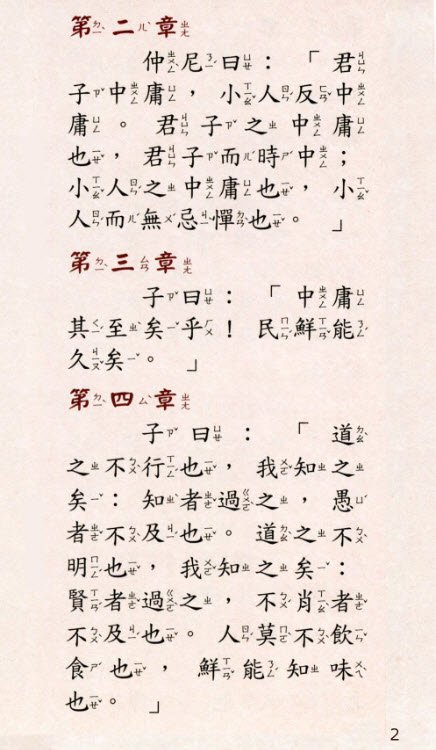 第二章
仲尼曰：「君
子中庸，小人反中
庸。君子之中庸
也，君子而時中；
小人之中庸也，小
人而無忌憚也。」
第三章
子曰：「中庸
其至矣乎！民鮮能
久矣。」
第四章
子曰：「道
之不行也，我知之
矣：知者過之，愚
者不及也。道之不
明也，我知之矣：
賢者過之，不肖者
不及也。人莫不飲
食也，鮮能知味
也。」
2